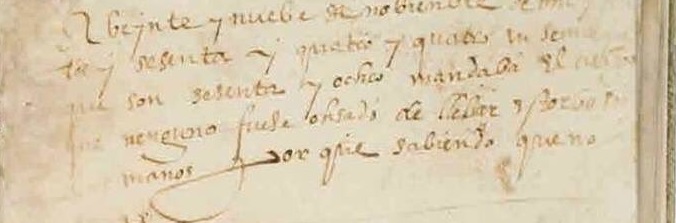 A beynte y nuebe de nobienbre de mil y
y sesenta y quatro y quatro
que son sesenta y ocho mandaba el
que nenguno fuese ohsado de llebar estorbo
manos por que sabiendo que no